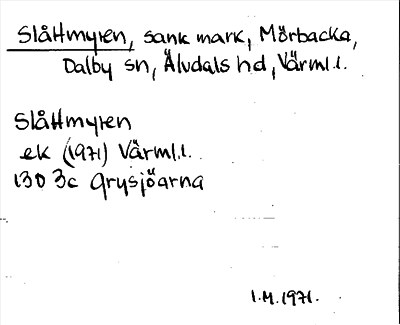 Slåttmyren, sank mark, Mörbacka,
Dalby sn, Älvdals hd, Värml.l.
Slåttmyren
ek (1971) Värml.l.
130 3c Grysjöarna
1.M.1971.